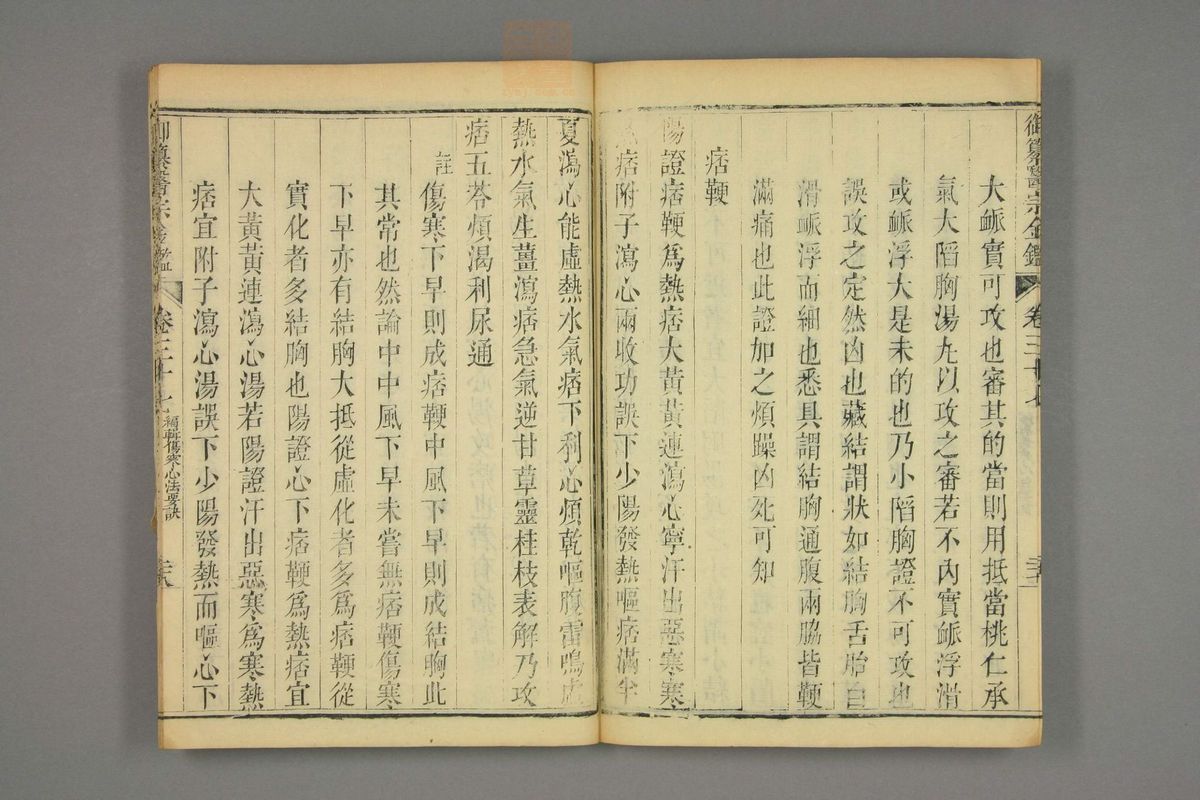 御纂醫宗金鑑 卷三十七
大衇實可攻也審其的當則用抵當桃仁承
氣大陷胸湯丸以攻之審若不內實衇浮滑
或衇浮大是未的也乃小陷胸證不可攻也
誤攻之定然凶也藏結謂狀如結胸舌胎白
滑衇浮而細也悉具謂結胸通腹兩脇皆鞕
滿痛也此證加之煩躁凶死可知
痞鞕
陽證痞鞕爲熱痞大黃黃連瀉心寧汗出惡寒寒
痞附子瀉心兩收功誤下少陽發熱嘔痞滿半
夏瀉心能虛熱水氣痞下利心煩乾嘔腹雷鳴虛
熱水氣生薑瀉痞急氣逆甘草靈桂枝表解乃攻
痞五苓煩渴利尿通
註 傷寒下早則成痞鞕中風下早則成結胸此
其常也然論中中風下早未嘗無痞鞕傷寒
下早亦有結胸大抵從虛化者多爲痞鞕從
實化者多結胸也陽證心下痞鞕爲熱痞宜
大黃黃連瀉心湯若陽證汗出惡寒爲寒熱
痞宜附子瀉心湯誤下少陽發熱而嘔心下
御纂醫宗金鑑 卷三十七 編輯傷寒心法要訣